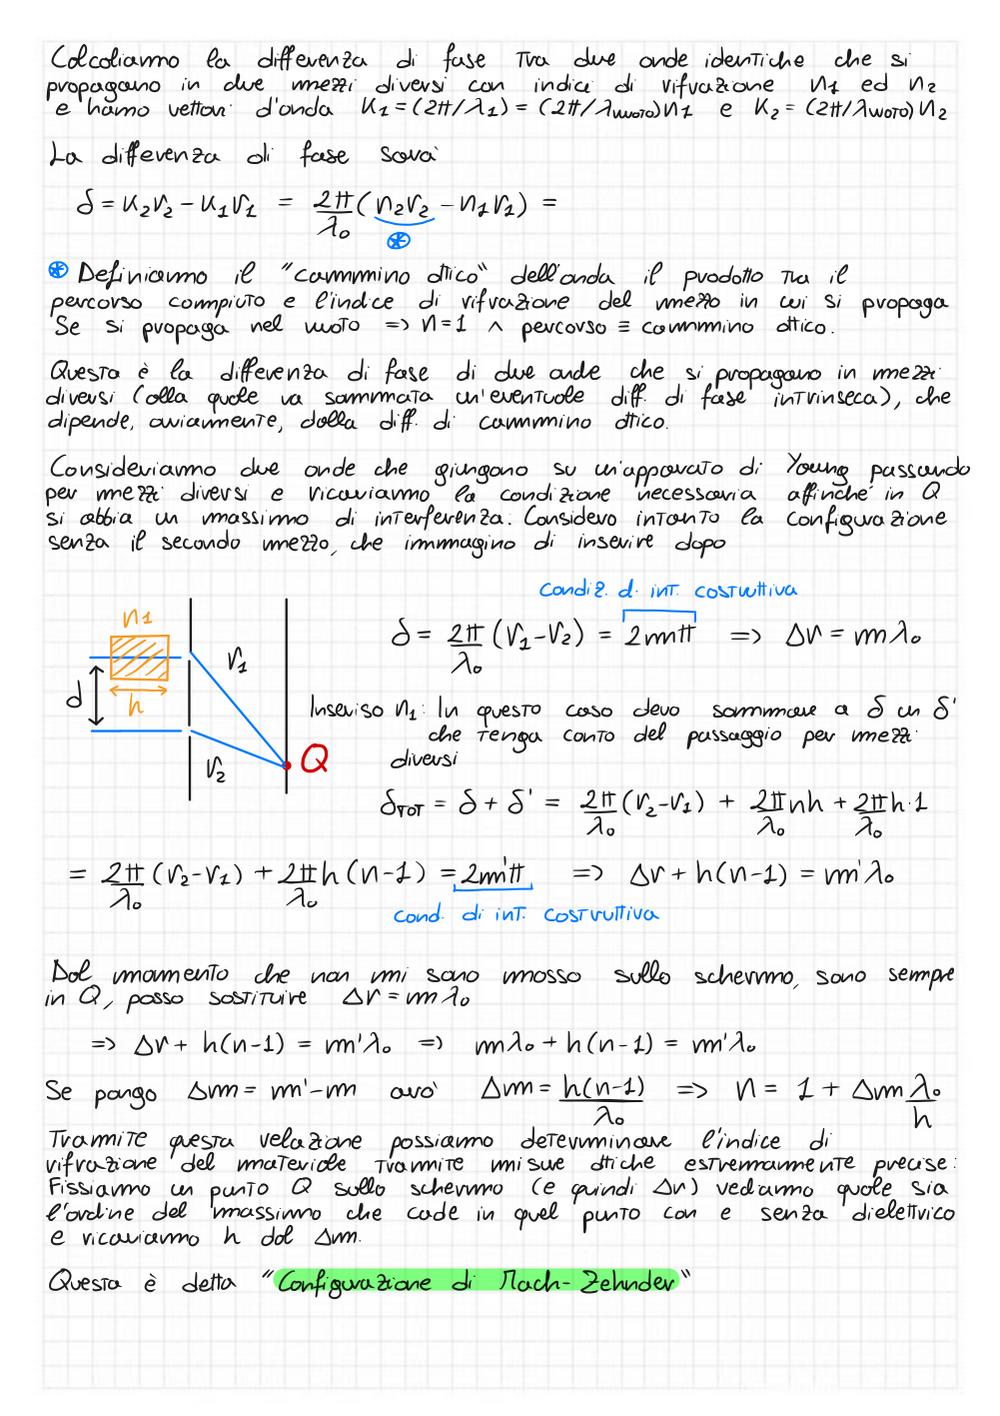 Calcoliamo la differenza di fase tra due onde identiche che si
propagano in due mezzi diversi con indici di rifrazione n1 ed n2
e hanno vettori d'onda K1 = (2π/λ1) = (2π/λvuoto)n1 e K2 = (2π/λvuoto)n2
La differenza di fase sarà
δ = K2r2 - K1r1 = 2π/λ0 (n2r2 - n1r1) =
⊛
⊛ Definiamo il "cammino ottico" dell'onda il prodotto tra il
percorso compiuto e l'indice di rifrazione del mezzo in cui si propaga
Se si propaga nel vuoto => n=1 ∧ percorso ≡ cammino ottico.
Questa è la differenza di fase di due onde che si propagano in mezzi
diversi (alla quale va sommata un'eventuale diff. di fase intrinseca), che
dipende, ovviamente, dalla diff. di cammino ottico.
Consideriamo due onde che giungono su un'apparato di Young passando
per mezzi diversi e ricaviamo la condizione necessaria affinché in Q
si abbia un massimo di interferenza. Considero intanto la configurazione
senza il secondo mezzo, che immagino di inserire dopo
Condiz. di int. costruttiva
δ = 2π/λ0 (r1-r2) = 2mπ => Δr = mλ0
n1
r1
d
h
r2
Q
Inserisco n1: In questo caso devo sommare a δ un δ'
che tenga conto del passaggio per mezzi
diversi
δTOT = δ + δ' = 2π/λ0 (r2-r1) + 2π/λ0 nh + 2π/λ0 h·1
= 2π/λ0 (r2-r1) + 2π/λ0 h(n-1) = 2m'π => Δr + h(n-1) = m'λ0
Cond. di int. costruttiva
Dal momento che non mi sono mosso sullo schermo, sono sempre
in Q, posso sostituire Δr = mλ0
=> Δr + h(n-1) = m'λ0 => mλ0 + h(n-1) = m'λ0
Se pongo Δm = m'-m avrò Δm = h(n-1)/λ0 => n = 1 + Δm λ0/h
Tramite questa relazione possiamo determinare l'indice di
rifrazione del materiale tramite misure ottiche estremamente precise:
Fissiamo un punto Q sullo schermo (e quindi Δr) vediamo quale sia
l'ordine del massimo che cade in quel punto con e senza dielettrico
e ricaviamo h dal Δm.
Questa è detta "Configurazione di Mach-Zehnder"